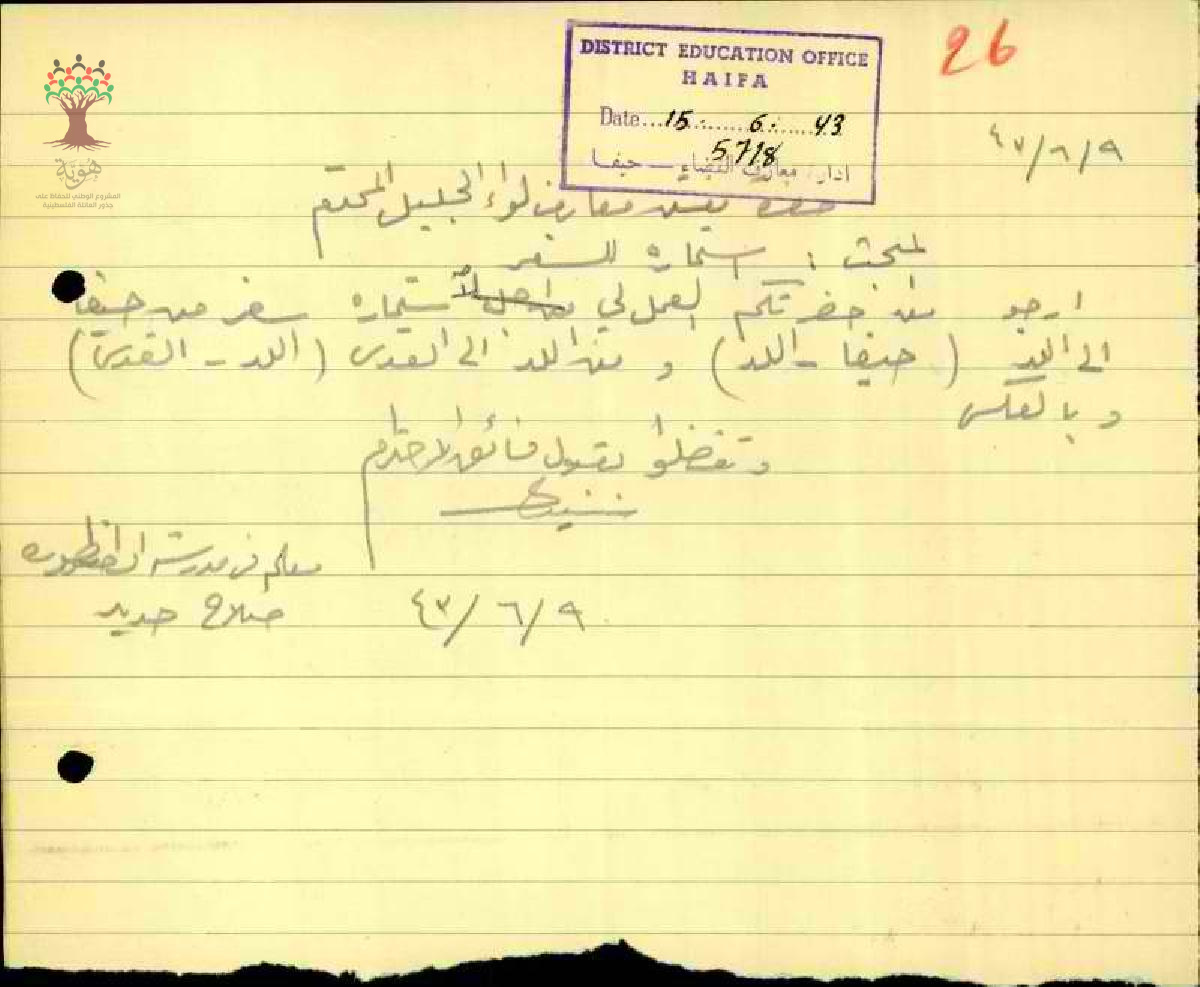 26
DISTRICT EDUCATION OFFICE
HAIFA
Date...15......6......43
5718
ادارة معارف القضاء — حيفا
هُوِيَّة
المشروع الوطني للحفاظ على
جذور العائلة الفلسطينية
٤٣/٦/٩
حضرة مفتش معارف لواء الجليل المحترم
المبحث : استمارة للسفر
ارجو من حضرتكم العمل لي استمارة سفر من حيفا
الى اللد (حيفا - اللد) و من اللد الى القدس (اللد - القدس)
و بالعكس
و تفضلوا بقبول فائق الاحترام
معلم في مدرسة الطنطورة
٤٣/٦/٩ صلاح حديد